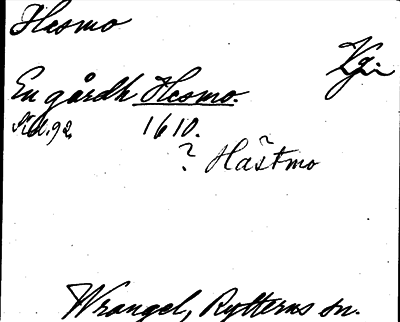 Hesmo
Vgi
En gårdh Hesmo.
Sid. 92. 1610.
? Hästmo
Wrangel, Rytterns sn.